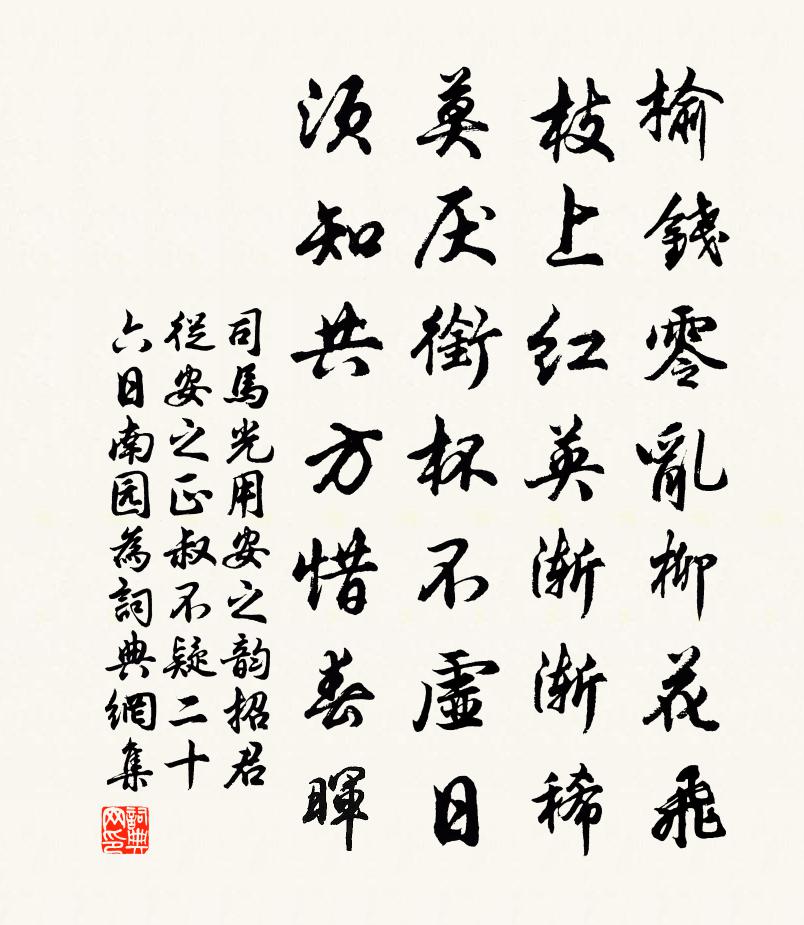 榆錢零亂柳花飛
枝上红英漸漸稀
莫厌銜杯不虛日
須知共方惜春暉
司馬光用安之韵招君
從安之正叔不疑二十
六日南园為詞典網集
詞典网印